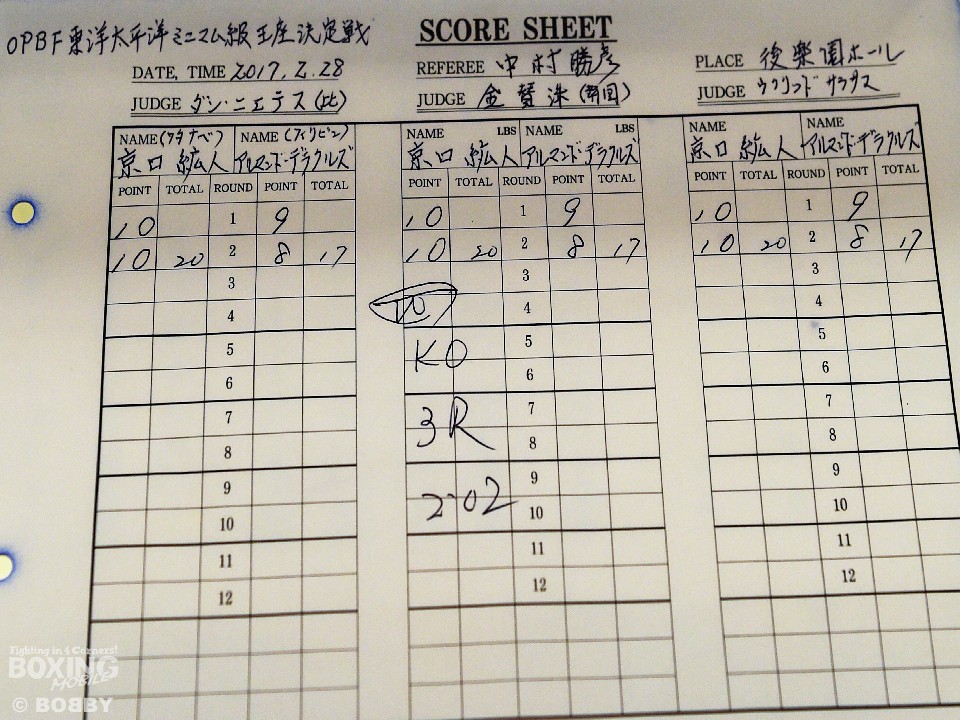 OPBF東洋太平洋ミニマム級王座決定戦
SCORE SHEET
DATE, TIME 2017.2.28
REFEREE 中村勝彦
PLACE 後楽園ホール
JUDGE ダン・ニエテス(比)
JUDGE 金 (韓国)
JUDGE
NAME (ワタナベ) NAME (フィリピン) NAME LBS NAME LBS NAME NAME
京口 紘人 アルマンド・デラクルズ 京口 紘人 アルマンド・デラクルズ 京口 紘人 アルマンド・デラクルズ
POINT TOTAL ROUND POINT TOTAL POINT TOTAL ROUND POINT TOTAL POINT TOTAL ROUND POINT TOTAL
10 1 9 10 1 9 10 1 9
10 20 2 8 17 10 20 2 8 17 10 20 2 8 17
3 3 3
4 4 4
5 KO 5 5
6 6 6
7 3R 7 7
8 8 8
9 2.02 9 9
10 10 10
11 11 11
12 12 12
Fighting in 4 Corners!
BOXING
MOBILE
© BOBBY